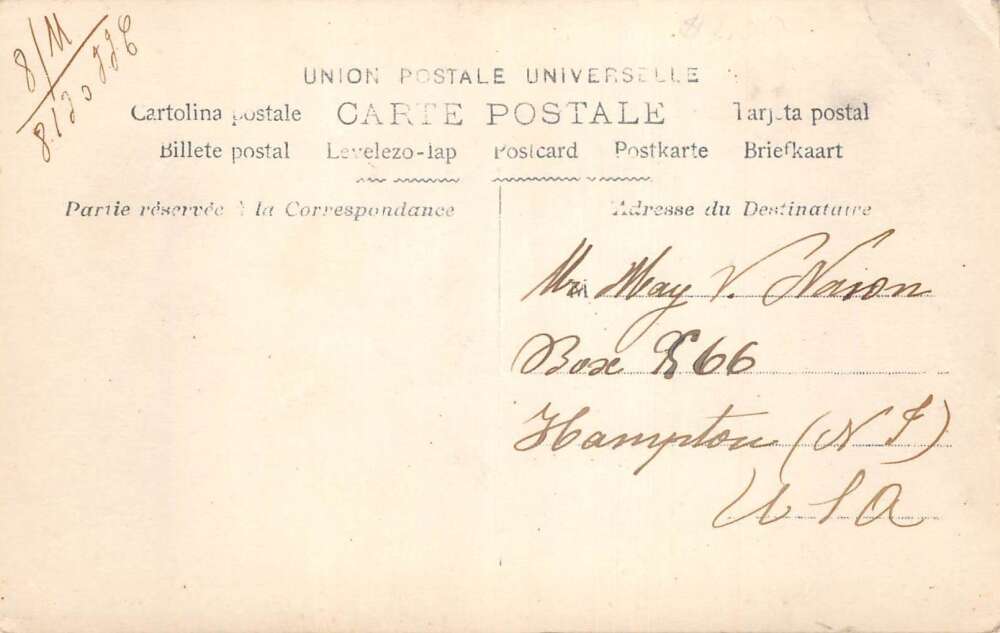 8/11
UNION POSTALE UNIVERSELLE
Cartolina postale CARTE POSTALE Tarjeta postal
Billete postal Levelezo-lap Postcard Postkarte Briefkaart
Partie réservée à la Correspondance
Adresse du Destinataire
May V. Nason
Box 66
Hampton (N J)
U S A